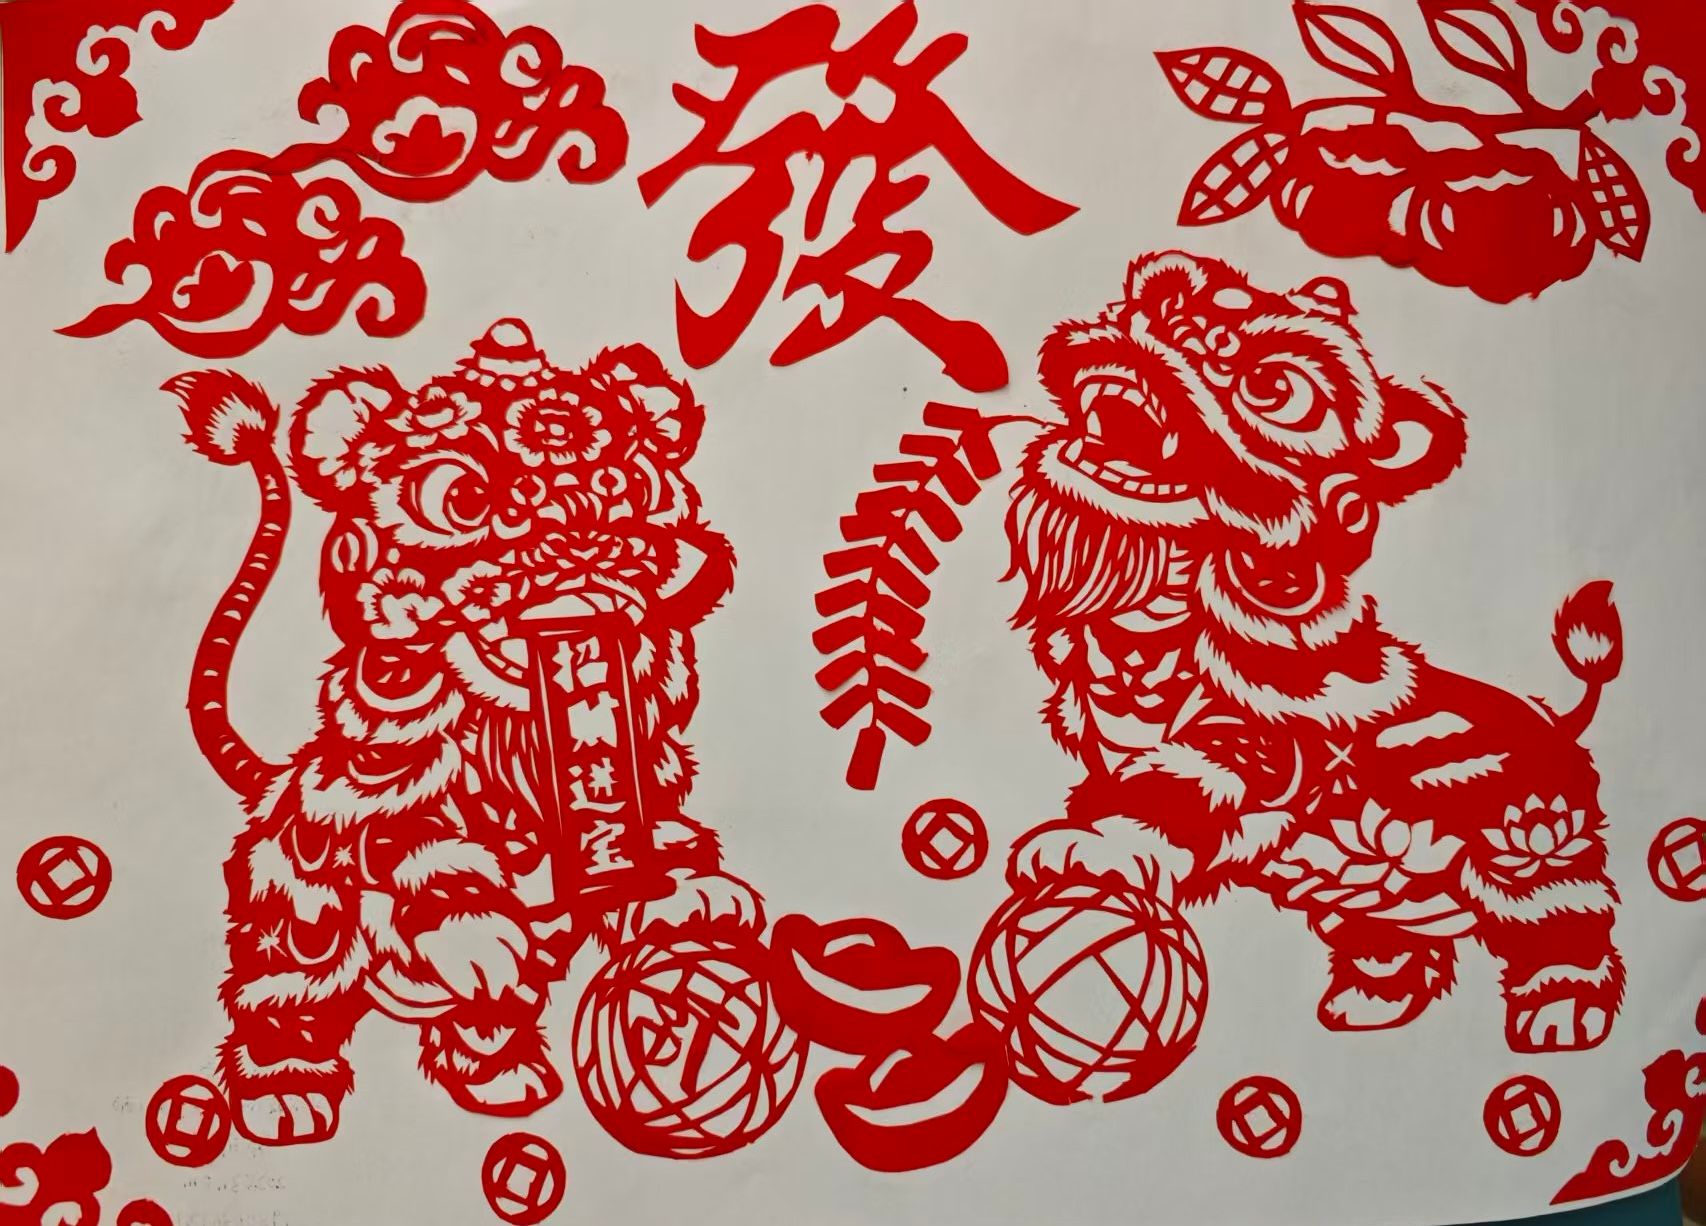 發
招财进宝